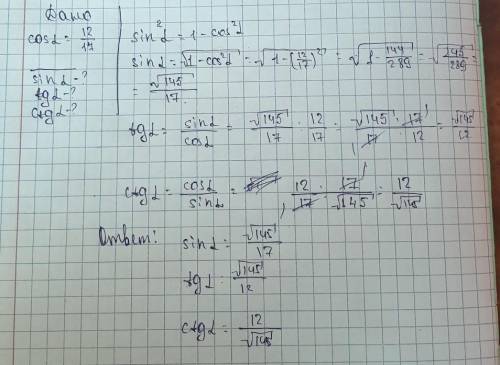 Дано
cosα = 12/17
sinα - ?
tgα - ?
ctgα - ?
sin²α = 1 - cos²α
sinα = √1 - cos²α = √1 - (12/17)² = √1 - 144/289 = √145/289 =
= √145/17
tgα = sinα/cosα = √145/17 : 12/17 = √145/17 · 17/12 = √145/12
ctgα = cosα/sinα = 12/17 · 17/√145 = 12/√145
Ответ: sinα = √145/17
tgα = √145/12
ctgα = 12/√145